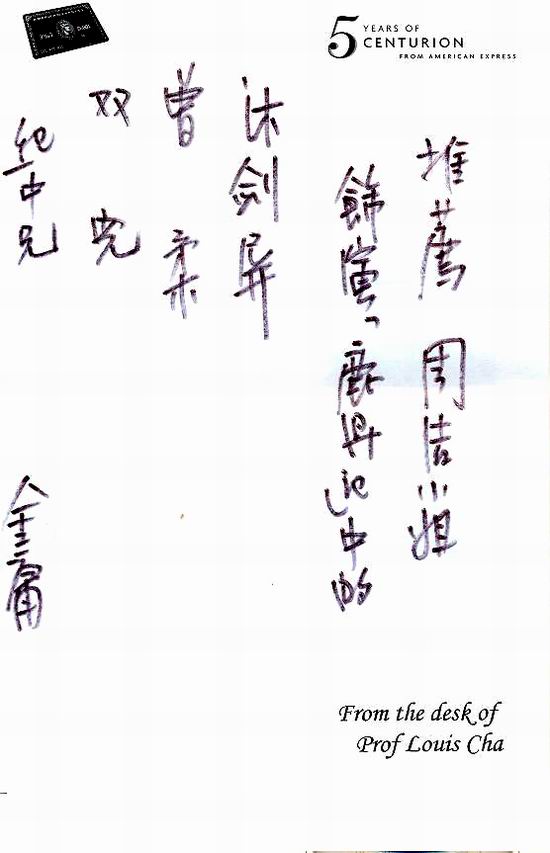 5 YEARS OF
CENTURION
FROM AMERICAN EXPRESS
推薦 周洁小姐
飾演「鹿鼎记中的
沐劍屏
曾柔
双兒
纪中兄
金庸
From the desk of
Prof Louis Cha